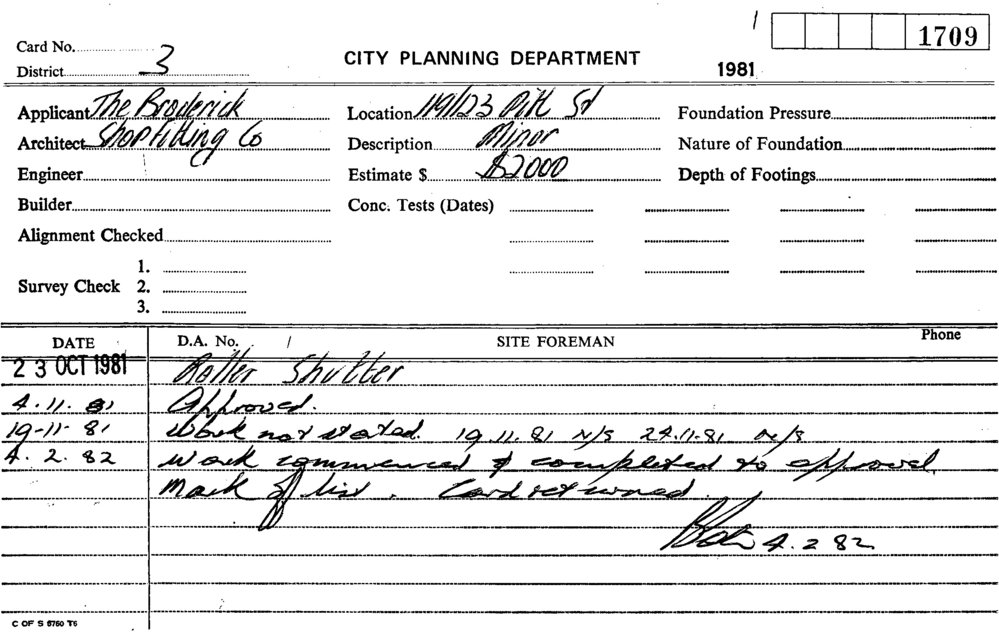 Card No. 1709
District 3 CITY PLANNING DEPARTMENT 1981
Applicant The Broderick Location 119/123 Pitt St Foundation Pressure
Architect Shopfitting Co Description Minor Nature of Foundation
Engineer Estimate $ $2000 Depth of Footings
Builder Conc. Tests (Dates)
Alignment Checked
1.
Survey Check 2.
3.
DATE D.A. No. / SITE FOREMAN Phone
23 OCT 1981 Roller Shutter
4.11.81 Approved.
19-11-81 Work not started. 19.11.81 N/S 24.11.81 N/S
4.2.82 Work commenced & completed to approval.
Mark off list. Card returned.
4.2.82
C OF S 6760 T6